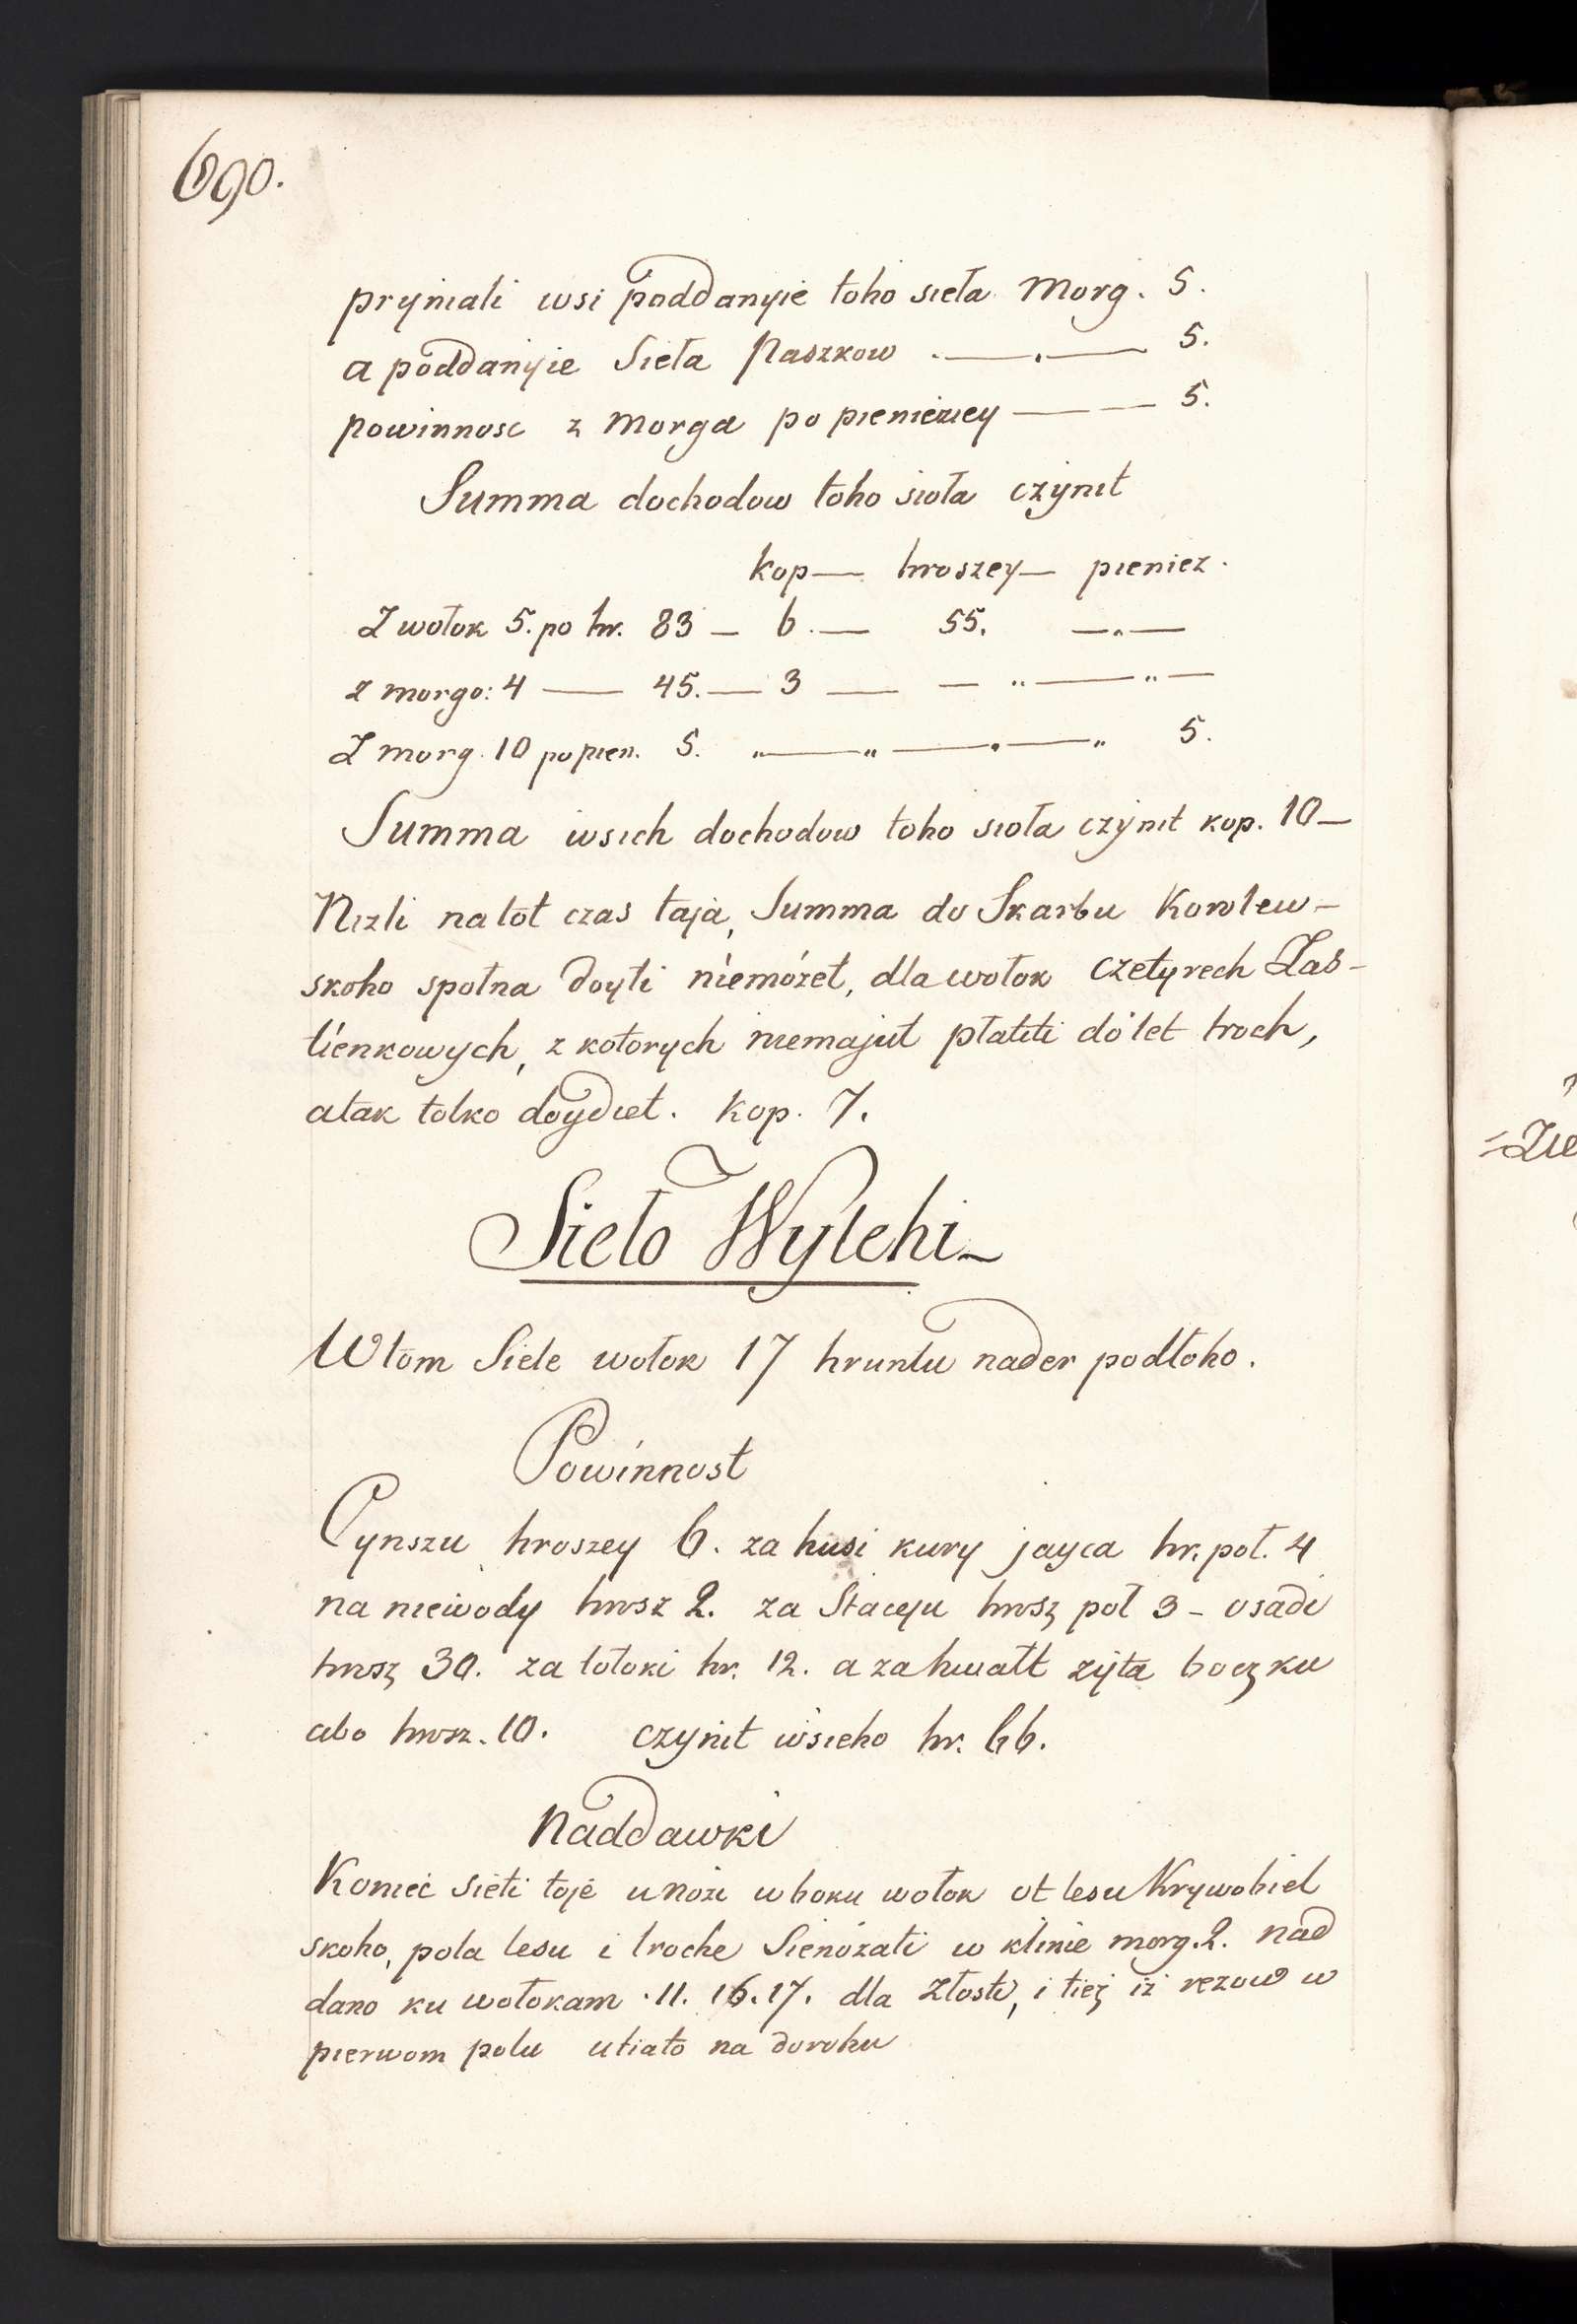 690.
pryniali wsi poddanyie toho sieła Morg. 5.
a poddanyie Sieła Paszkow .—.— 5.
powinnosc z Morga po pienieziey — — 5.
Summa dochodow toho sioła czynit
kop— hroszey— pieniez.
Z wołok 5. po hr. 83 — 6. — 55. —.—
z morgo: 4 — 45. — 3 — — „ — „ —
Z morg. 10 po pien. 5. „ — „ — . — „ 5.
Summa wsich dochodow toho sioła czynit kop. 10—
Nizli na tot czas taja, Summa do Skarbu Korolew-
skoho społna doyti niemożet, dla wołok czetyrech Zas-
tienkowych, z kotorych niemajut płatiti do let troch,
a tak tolko doydiet. kop. 7.
Sieło Wytehi—
W tom Siele wołok 17 hruntu nader podłoho.
Powinnost
Cynszu hroszey 6. za husi kury jayca hr. poł. 4
na niewody hrosz 2. za Stacyu hrosz poł 3 - osadi
hrosz 30. za tołoki hr. 12. a za hwałt żyta boczku
abo hrosz. 10. czynit wsieho hr. 66.
Naddawki
Koniec sieti toje u nozi w boku wołok ot lesu Krywobiel
skoho, pola lesu i troche Sienożati w klinie morg. 2. nad
dano ku wołokam . 11. 16. 17. dla złosti, i tiez iż rezow w
pierwom polu utiato na dorohu
=Zie